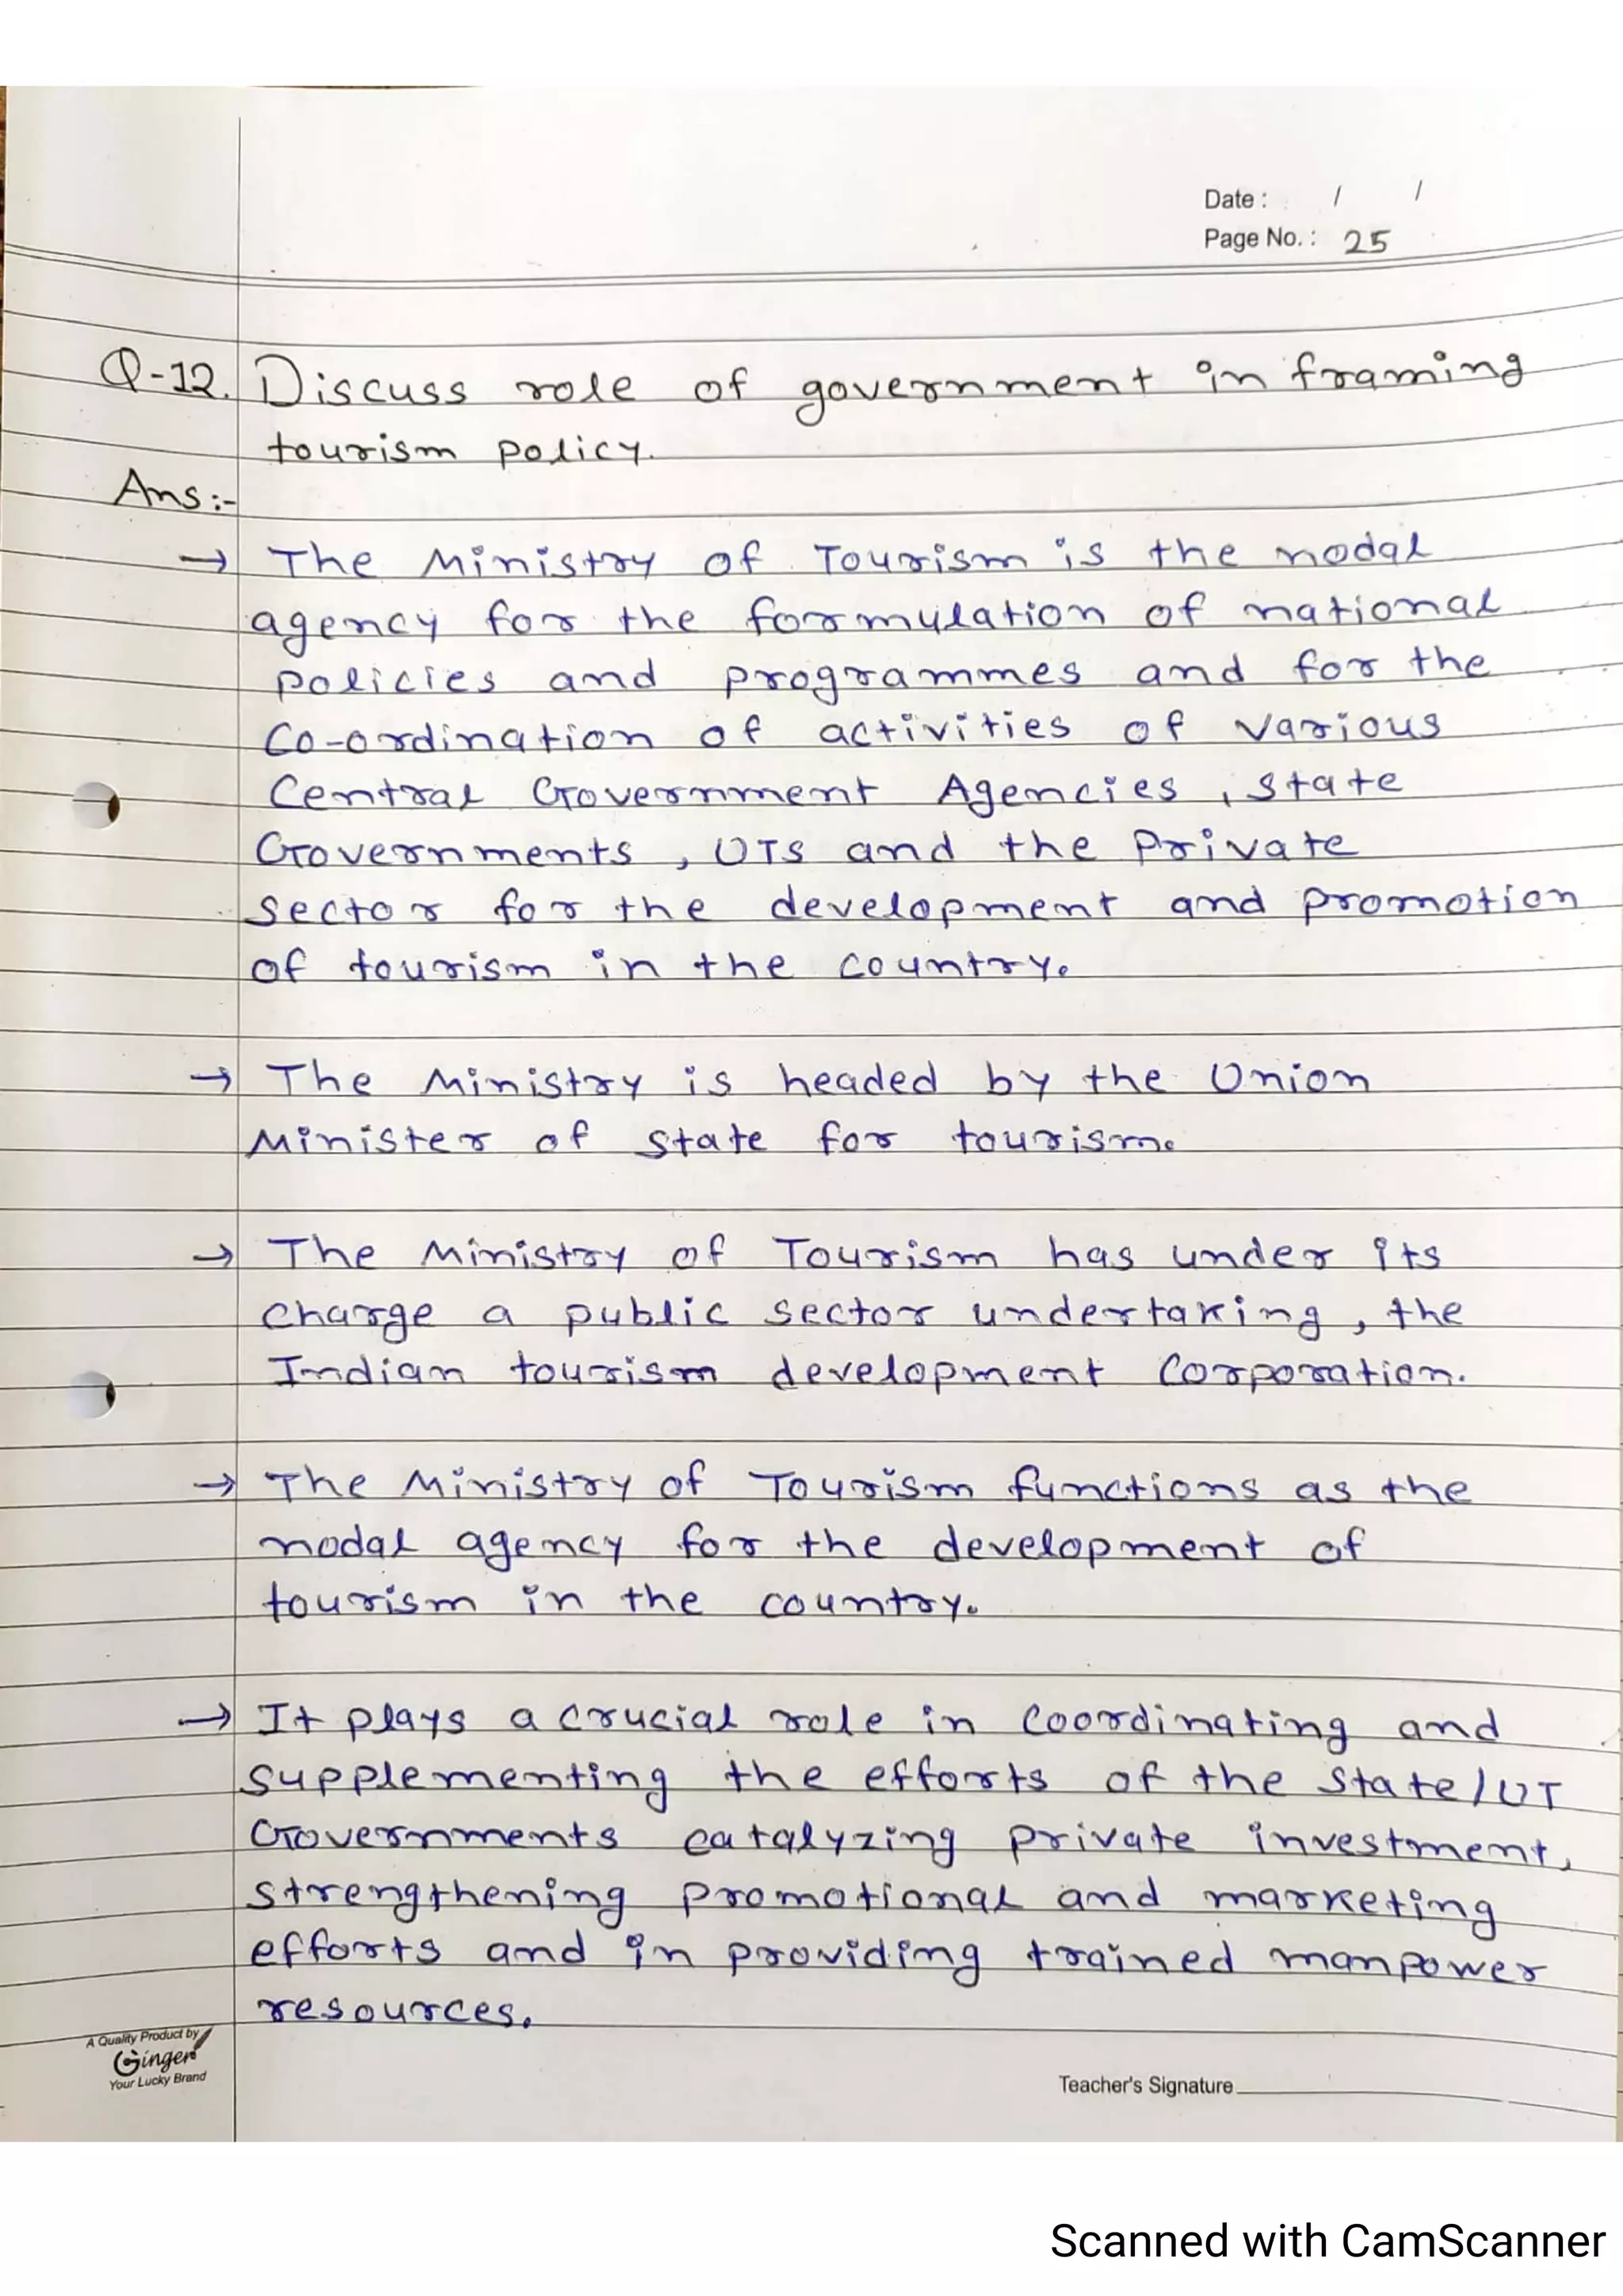 Date : / /
Page No. : 25
Q-12. Discuss role of government in framing
tourism policy.
Ans:-
→ The Ministry of Tourism is the nodal
agency for the formulation of national
policies and programmes and for the
co-ordination of activities of various
Central Government Agencies, State
Governments, UTs and the Private
Sector for the development and promotion
of tourism in the country.
→ The Ministry is headed by the Union
Minister of State for tourism.
→ The Ministry of Tourism has under its
charge a public sector undertaking, the
Indian tourism development Corporation.
→ The Ministry of Tourism functions as the
nodal agency for the development of
tourism in the country.
→ It plays a crucial role in coordinating and
supplementing the efforts of the State/UT
Governments catalyzing private investment,
strengthening promotional and marketing
efforts and in providing trained manpower
resources.
A Quality Product by
Ginger
Your Lucky Brand
Teacher's Signature
Scanned with CamScanner